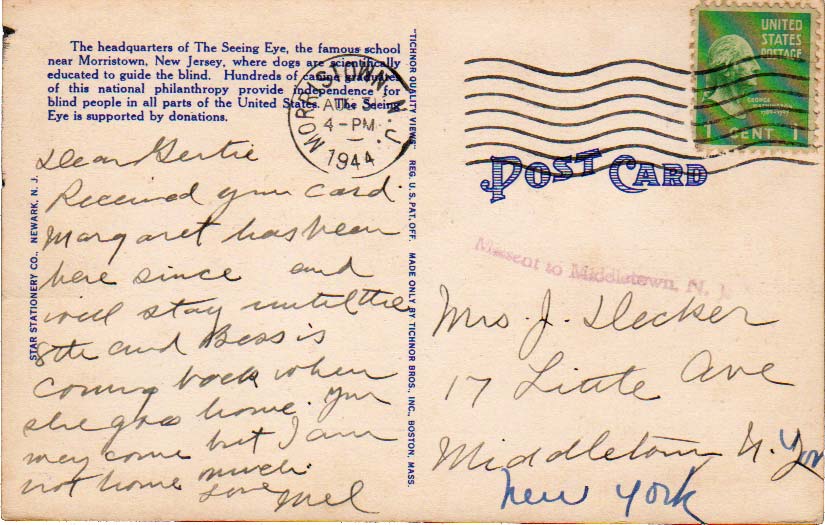 The headquarters of The Seeing Eye, the famous school
near Morristown, New Jersey, where dogs are scientifically
educated to guide the blind. Hundreds of canine graduates
of this national philanthropy provide independence for
blind people in all parts of the United States. The Seeing
Eye is supported by donations.
Dear Gertie
Received your card.
Margaret has been
here since and
will stay until the
8th and Bess is
coming back when
she goes home. You
may come but I am
not home much.
Love Mel
STAR STATIONERY CO., NEWARK, N. J.
"TICHNOR QUALITY VIEWS" REG. U. S. PAT. OFF. MADE ONLY BY TICHNOR BROS., INC., BOSTON, MASS.
MORRISTOWN, N. J.
AUG 3
4-PM
1944
UNITED
STATES
POSTAGE
GEORGE
WASHINGTON
1 CENT 1
POST CARD
Missent to Middletown, N. J.
Mrs. J. Decker
17 Little Ave
Middletown N. Yor
New York